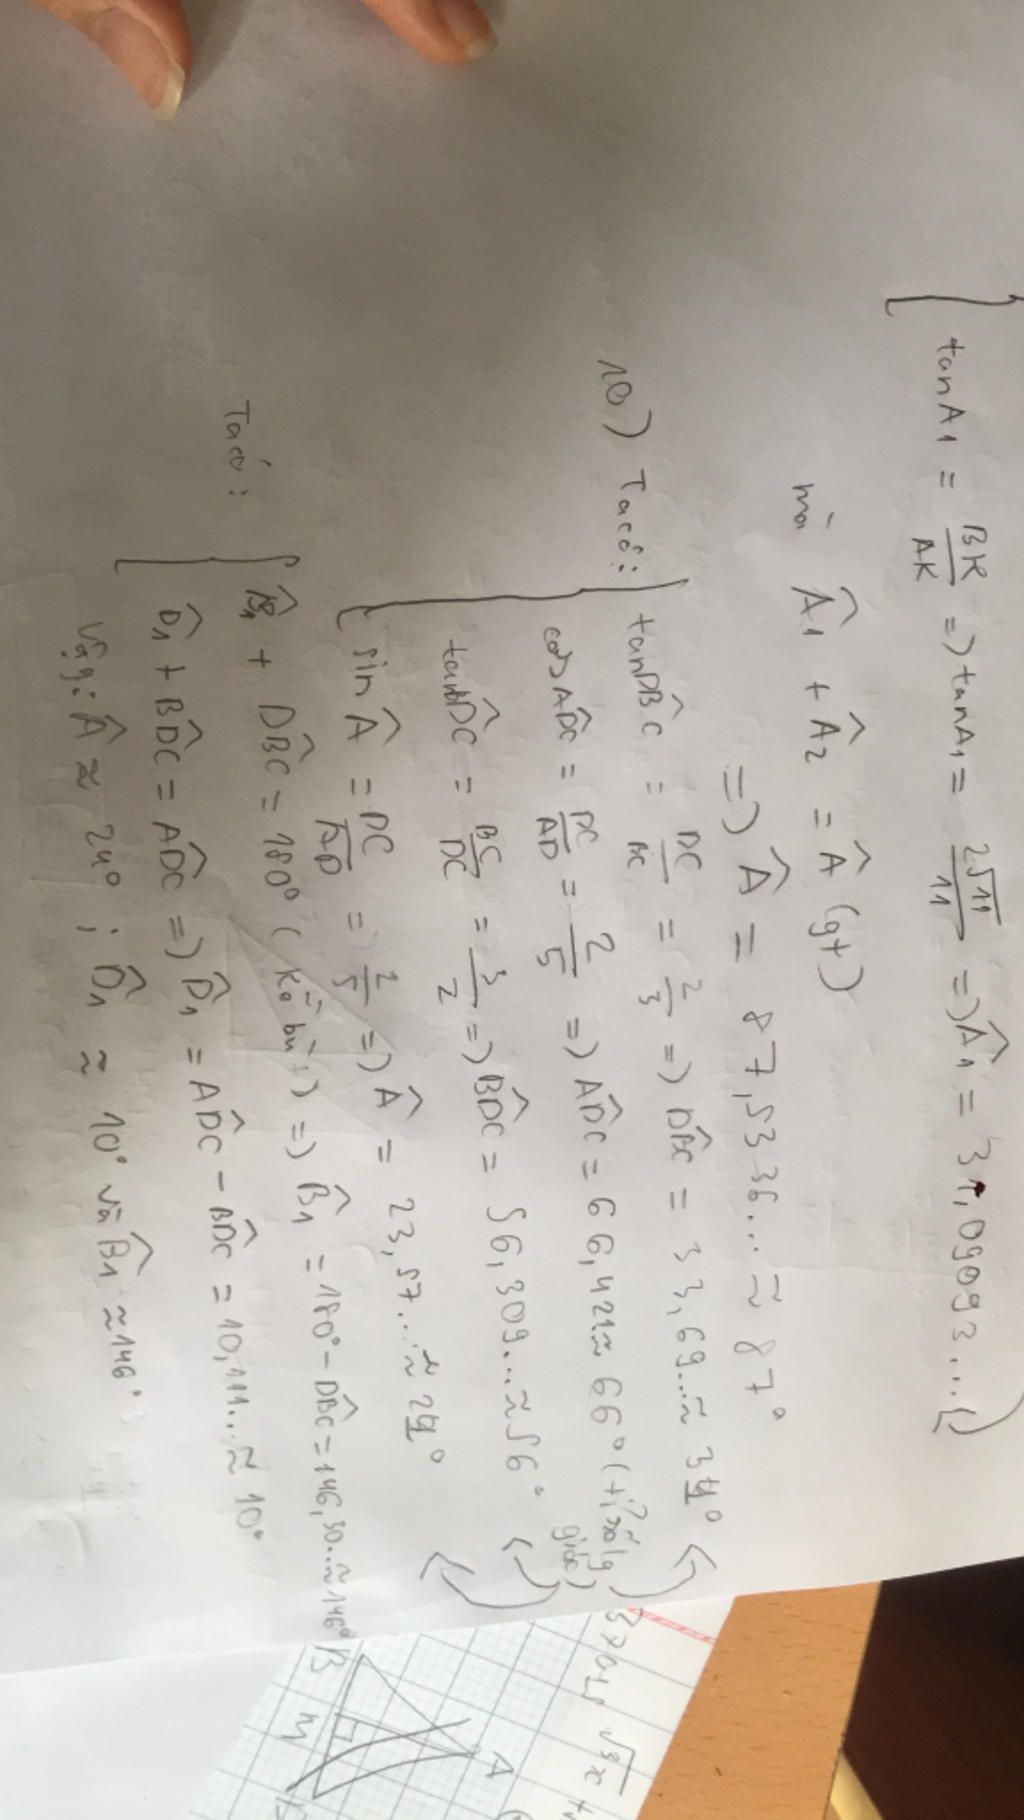 tanA₁ = BK/AK => tanA₁ = 2√11/11 => Â₁ = 31,09093...()
mà Â₁ + Â₂ = Â (gt)
=> Â = 87,5336... ≈ 87°
10) Ta có: tanDB̂C = DC/BC = 2/3 => DB̂C = 33,69... ≈ 34°
cosAD̂C = DC/AD = 2/5 => AD̂C = 66,421 ≈ 66° (tỉ số lg giác)
tanBD̂C = BC/DC = 3/2 => BD̂C = 56,309... ≈ 56° ()
sin Â = DC/AD = 2/5 => Â = 23,57... ≈ 24°
Ta có: B̂₁ + DB̂C = 180° (kề bù) => B̂₁ = 180° - DB̂C = 146,30.. ≈ 146°
D̂₁ + BD̂C = AD̂C => D̂₁ = AD̂C - BD̂C = 10,111... ≈ 10°
Vậy: Â ≈ 24° ; D̂₁ ≈ 10° và B̂₁ ≈ 146°
√9x +
B
A
M